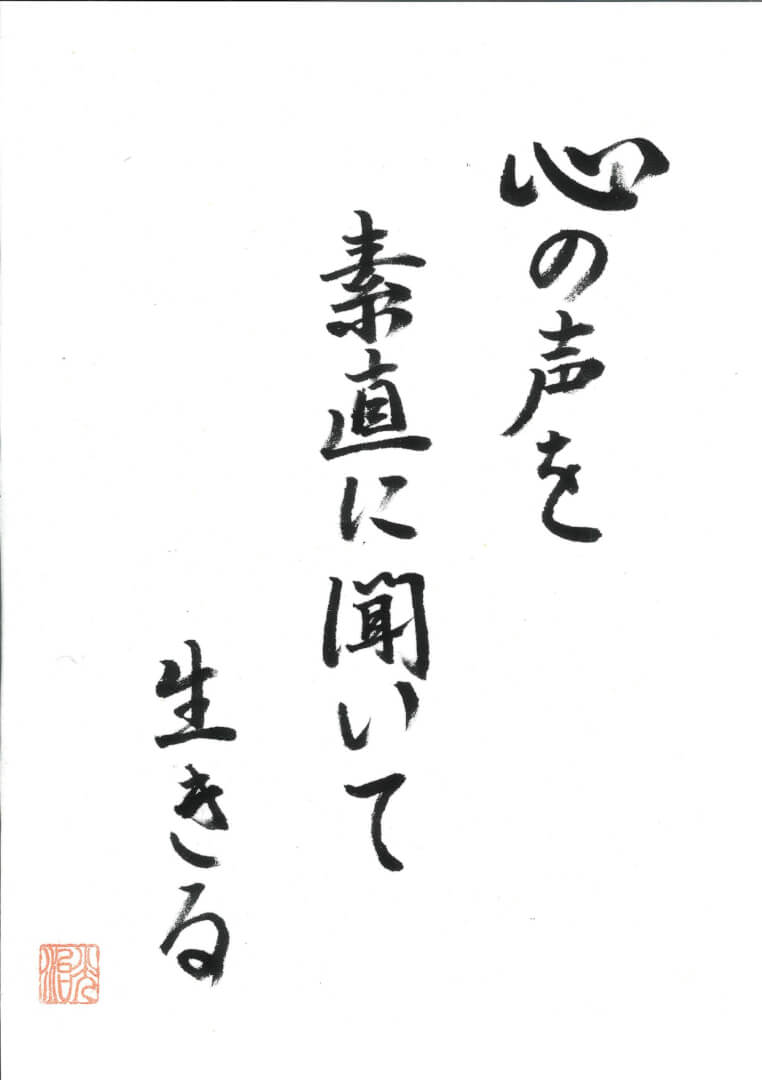 心の声を
素直に聞いて
生きる